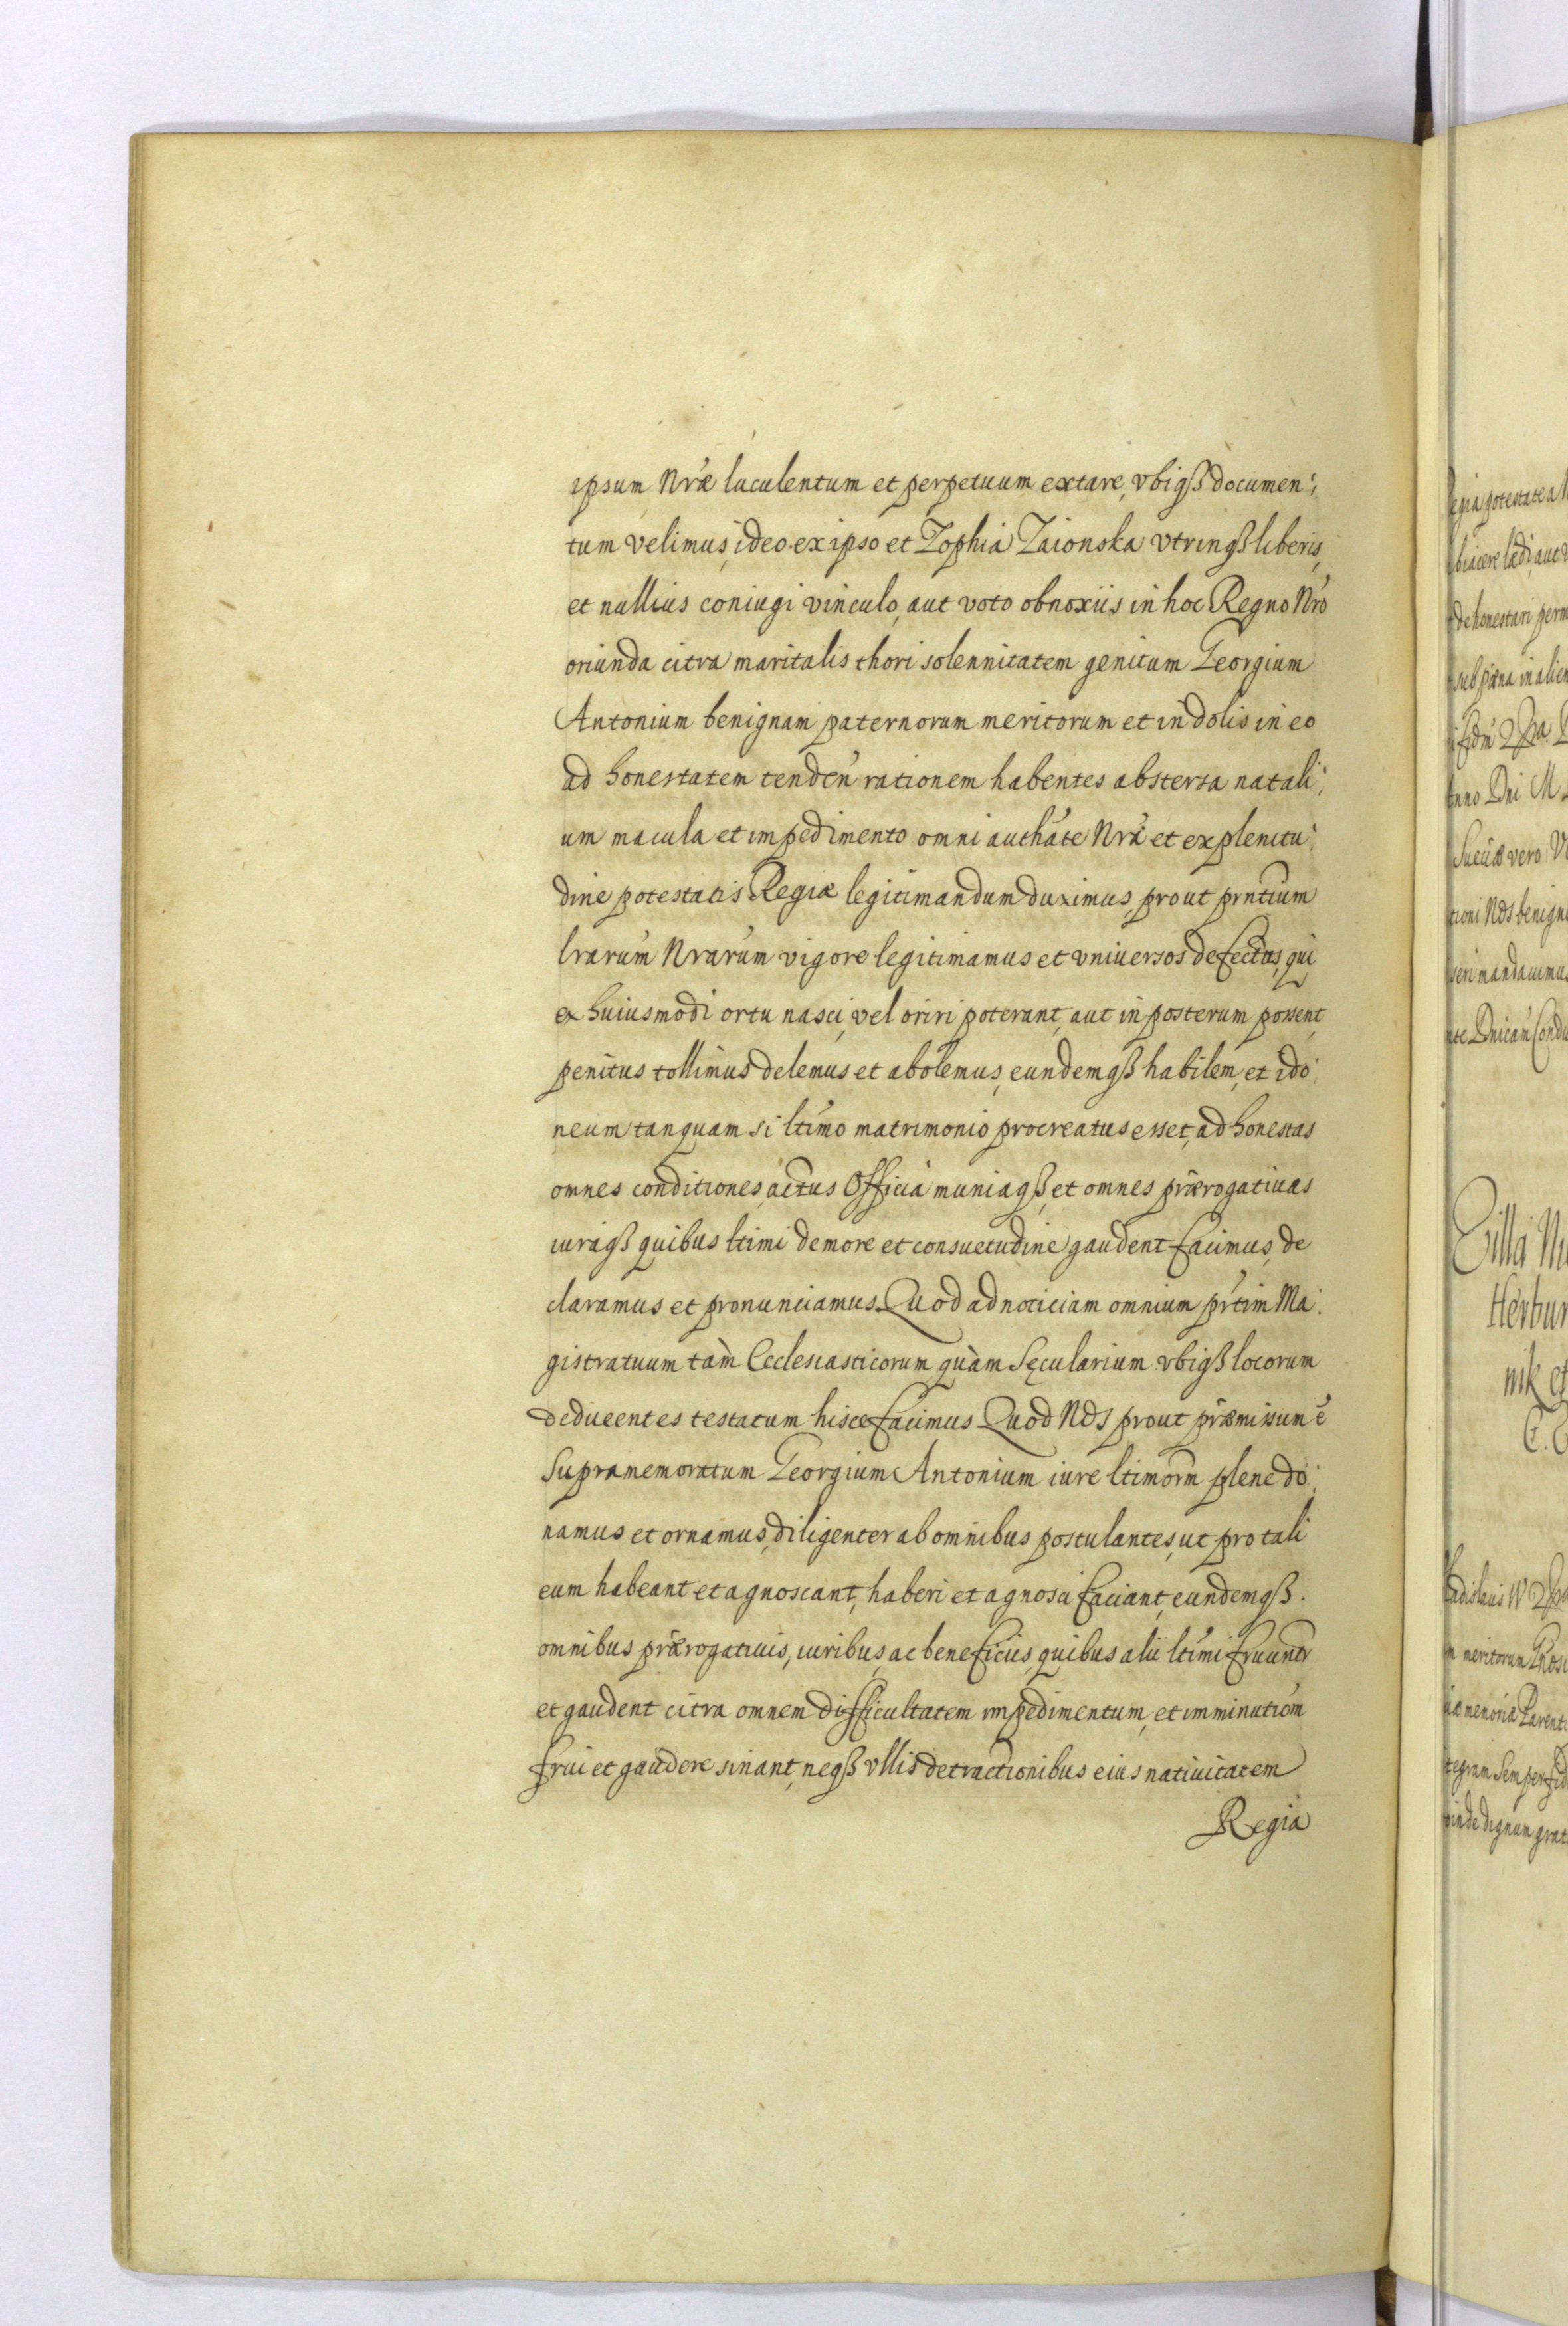 ipsum Nræ luculentum et perpetuum extare, vbiqß documen:
tum velimus, ideo ex ipso et Zophia Zaionska vtrinqß liberis,
et nullius coniugi vinculo, aut voto obnoxiis in hoc Regno Nro
oriunda citra maritalis thori solennitatem genitum Georgium
Antonium benignam paternorum meritorum et indolis in eo
ad honestatem tenden rationem habentes abstersa natali:
um macula et impedimento omni authate Nra et ex plenitu:
dine potestatis Regiæ legitimandum duximus, prout prntium
lrarum Nrarum vigore legitimamus et vniuersos defectus, qui
ex huiusmodi ortu nasci, vel oriri poterant, aut in posterum possent,
penitus tollimus delemus et abolemus, eundemqß habilem, et ido:
neum tanquam si ltimo matrimonio procreatus esset, ad honestas
omnes conditiones, actus Officia muniaqß, et omnes prærogatiuas
iuraqß quibus ltimi de more et consuetudine gaudent facimus, de
claramus et pronunciamus. Quod ad noticiam omnium prtim Ma:
gistratuum tam Ecclesiasticorum quàm Sęcularium vbiqß locorum
deducentes testatum hisce facimus Quod Nos prout præmissum é
Supramemoratum Georgium Antonium iure ltimorm plene do:
namus et ornamus, diligenter ab omnibus postulantes, ut pro tali
eum habeant et agnoscant, haberi et agnosci faciant, eundemqß.
omnibus prærogatiuis, iuribus, ac beneficiis, quibus alii ltimi fruuntr
et gaudent citra omnem difficultatem impedimentum, et imminutiom
frui et gaudere sinant, neqß vllis detractionibus eius natiuitatem
Regia
egia potestate a
biacere lædi, aut
dehonestari perm
sub pœna in alien
Anno Dni M
Sueciæ vero
tioni Nos benigne
seri mandauimus
Herbur
nik et
adislaus IV
meritorum
memoriæ Parenti
tegram semper fid
inde dignum grat